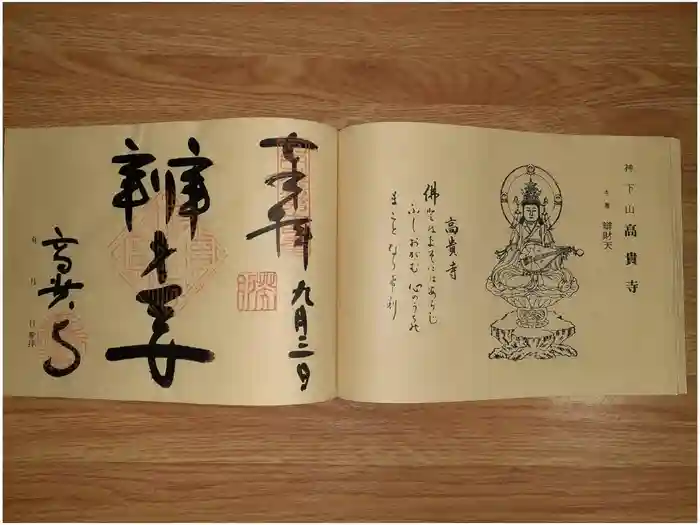 神下山高貴寺
本尊 辯財天
高貴寺
佛とはよそにはあらじ
ふしおがむ 心のうちの
まことなりけり
奉拝
九月三日
辨才尊
高貴寺
年 月 日参拝